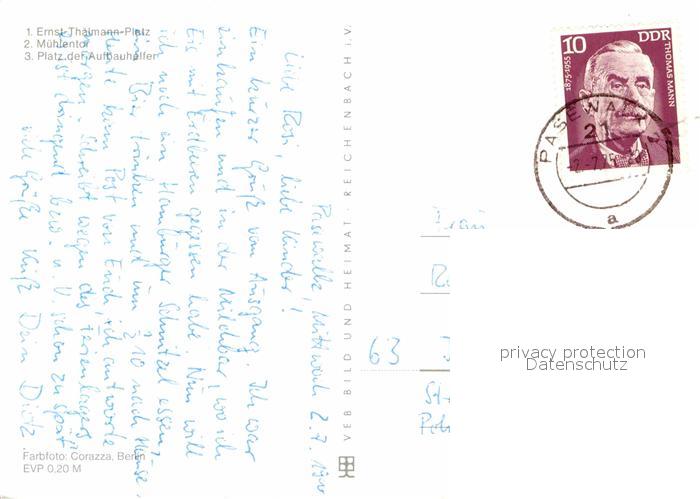 1. Ernst-Thälmann-Platz
2. Mühlentor
3. Platz der Aufbauhelfer
Pasewalk, Mittwoch 2.7.
Liebe Rosi, liebe Kinder!
Ein kurzer Gruß vom Ausgang. Ich war
einkaufen und in der Milchbar, wo ich
Eis mit Erdbeeren gegessen habe. Nun will
ich noch ein Hamburger Schnitzel essen,
ein Bier trinken und um ½ 10 nach Hause.
Heute kam Post von Euch, ich antworte
morgen. Schreibt wegen des Ferienlagers
dringend bzw. u. U. schon zu spät.
viele Grüße Kuß Dein
Farbfoto: Corazza, Berlin
EVP 0,20 M
VEB BILD UND HEIMAT REICHENBACH i.V.
10 DDR
1875-1955
THOMAS MANN
PASEWALK
21
-2.-7.75
a
Frau
63
privacy protection
Datenschutz